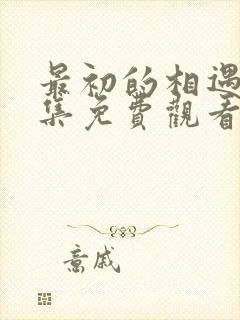 最初的相遇
集免費觀看
意戚